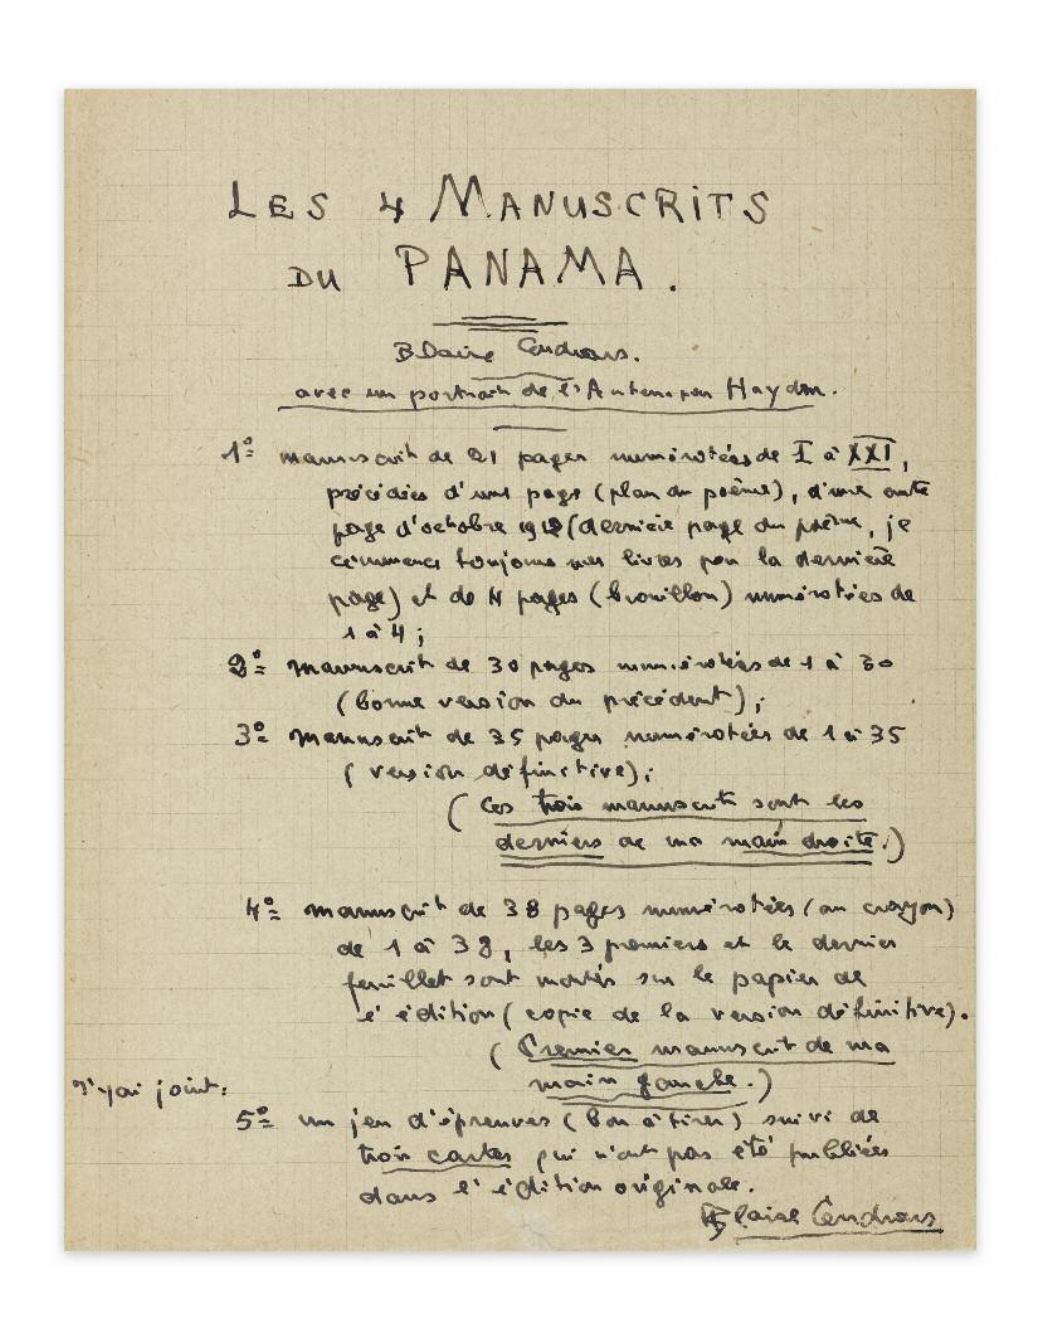 LES 4 MANUSCRITS
DU PANAMA.
Blaise Cendrars.
avec un portrait de l'Auteur par Hayden.
1º manuscrit de 21 pages numérotées de I à XXI,
précédées d'une page (plan du poème), d'une autre
page d'octobre 1912 (dernière page du poème, je
commence toujours mes livres par la dernière
page) et de 4 pages (brouillon) numérotées de
1 à 4;
2º manuscrit de 30 pages numérotées de 1 à 30
(bonne version du précédent);
3º manuscrit de 35 pages numérotées de 1 à 35
(version définitive);
(Ces trois manuscrits sont les
derniers de ma main droite.)
4º manuscrit de 38 pages numérotées (au crayon)
de 1 à 38, les 3 premiers et le dernier
feuillet sont montés sur le papier de
l'édition (copie de la version définitive).
(Premier manuscrit de ma
main gauche.)
J'y ai joint:
5º un jeu d'épreuves (bon à tirer) suivi de
trois cartes qui n'ont pas été publiées
dans l'édition originale.
Blaise Cendrars